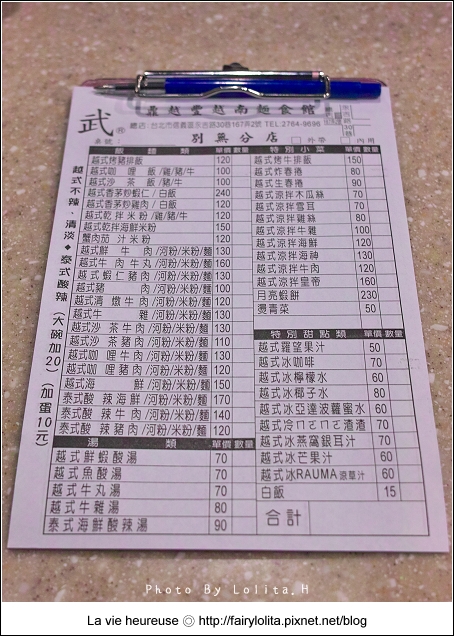 武®
鼎越雲越南麵食館
總店:台北市信義區永吉路30巷167弄2號 TEL:2764-9696
桌號:
別無分店
外帶
內用
越式不辣、清淡◆泰式酸辣(大碗加20)(加蛋10元)
飯麵類 單價 數量
越式烤豬排飯 120
越式咖哩飯/雞/豬/牛 100
越式沙茶飯/豬/牛 100
越式香茅炒蝦仁/白飯 240
越式香茅炒雞肉/白飯 120
越式乾拌米粉/雞/豬/牛 120
越式乾拌海鮮米粉 150
蟹肉茄汁米粉 120
越式鮮牛肉/河粉/米粉/麵 130
越式牛肉牛丸/河粉/米粉/麵 160
越式蝦仁豬肉/河粉/米粉/麵 130
越式豬肉/河粉/米粉/麵 100
越式清燉牛肉/河粉/米粉/麵 120
越式牛雜/河粉/米粉/麵 130
越式沙茶牛肉/河粉/米粉/麵 130
越式沙茶豬肉/河粉/米粉/麵 110
越式咖哩牛肉/河粉/米粉/麵 130
越式咖哩豬肉/河粉/米粉/麵 120
越式海鮮/河粉/米粉/麵 150
泰式酸辣海鮮/河粉/米粉/麵 170
泰式酸辣牛肉/河粉/米粉/麵 140
泰式酸辣豬肉/河粉/米粉/麵 120
湯類 單價 數量
越式鮮蝦酸湯 70
越式魚酸湯 70
越式牛丸湯 70
越式牛雜湯 80
泰式海鮮酸辣湯 90
特別小菜 單價 數量
越式烤牛排飯 150
越式炸春捲 80
越式生春捲 90
越式涼拌木瓜絲 70
越式涼拌雪耳 70
越式涼拌雞絲 80
越式涼拌牛雜 100
越式涼拌海鮮 120
越式涼拌海神 130
越式涼拌牛肉 120
越式涼拌皇帝 160
月亮蝦餅 230
燙青菜 50
特別甜點類 單價 數量
越式羅望果汁 50
越式冰咖啡 70
越式冰檸檬水 60
越式冰椰子水 80
越式冰亞達波蘿蜜水 60
越式冷ㄇㄛㄇㄛ渣渣 70
越式冰燕窩銀耳汁 70
越式冰芒果汁 60
越式冰RAUMA涼草汁 60
白飯 15
合計
Photo By Lolita.H
La vie heureuse ◎ http://fairylolita.pixnet.net/blog